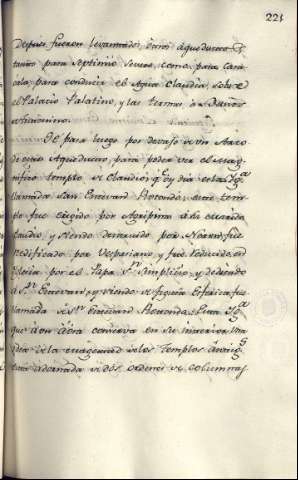 221
Despues fueron levantados varios aqueductos
tanto para Septimio Severo, como para Cara
cala, para conducir el Agua Claudia sobre
el Palacio Palatino, y las termas
Antoninianas.
Se pasa luego por devajo de un Arco
de estos Aqueductos, para poder ver el mag
nifico templo de Claudio, q.e oy dia es la Ig.a
llamada San Estevan Rotondo, este tem
plo fue erigido por Agripina a su marido
Claudio, y siendo derrocado por Neron, fue
reedificado por Vespasiano y fue reducido en
Iglesia por el Papa S.n Simplicio, y dedicado
a S.n Estevan, y viendo de figura Esferica, fue
llamada de S.n Estevan Rotondo. Esta Ig.a
que aun ahora conserva en su interior una
idea de la magestad de los templos Antig.s
esta adornada de dos ordenes de columnas